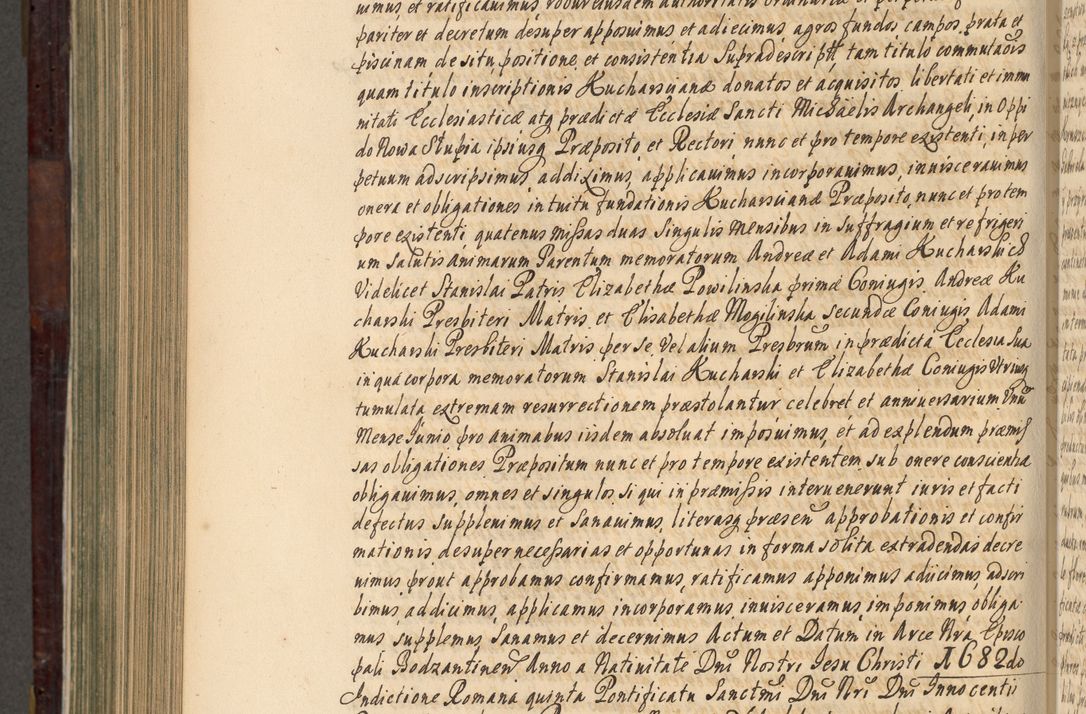 uimus et ratificauimus robur eiusdem authoritatis ordinariæ et perpetuæ
pariter et decretum desuper apposuimus et adiecimus, agros fundos campos prata et
piscinam de situ positione et consistentia supradescriptt tam titulo commutaõis
quam titulo inscriptionis Kucharscianæ donatos et acquisitos libertati et immu
nitati Ecclesiasticæ atq prædictæ Ecclesiæ Sancti Michäelis Archangeli, in Oppi
do Nowa Stupia ipsiusq Præposito et Rectori nunc et pro tempore existenti, in per
petuum adscripsimus, addiximus, applicauimus incorporauimus, inuiscerauimus
onera et obligationes intuitu fundationis Kucharscianæ Præposito, nunc et pro tem
pore existenti quatenus missas duas singulis mensibus in suffragium et refrigeri
um salutis animarum Parentum memoratorum Andreæ et Adami Kucharskich
Videlicet Stanislai Patris Elizabethæ Powilinska primæ Coniugis Andreæ Ku
charski Presbiteri Matris, et Elisabethæ Mogilinska secundæ Coniugis Adami
Kucharski Presbiteri Matris per se, vel alium Presbrum in prædicta Ecclesia sua
in qua corpora memoratorum Stanislai Kucharski et Elizabethæ Coniugis Utriusq
tumulata extremam resurrectionem præstolantur celebret et anniuersarium unũ
Mense Junio pro animabus iisdem absoluat imposuimus, et ad explendum præmis
sas obligationes Præpositum nunc et pro tempore existentem sub onere conscientiæ
obligauimus, omnes et singulos si qui in præmissis interuenerunt iuris et facti
defectus suppleuimus et sanauimus, literasq præsen approbationis et confir
mationis desuper necessarias et opportunas in forma solita extradendas decre
uimus prout approbamus confirmamus, ratificamus apponimus adiicimus, adscri
bimus, addicimus, applicamus incorporamus inuisceramus, imponimus, obliga
mus, supplemus, sanamus et decernimus Actum et Datum in Arce Nrã Episco
pali Bodzantinen Anno a Natiuitate Dnĩ Nostri Jesu Christi 1682do
Indictione Romana quinta Pontificatu Sanctmi Dnĩ Nrĩ Dnĩ Innocentii